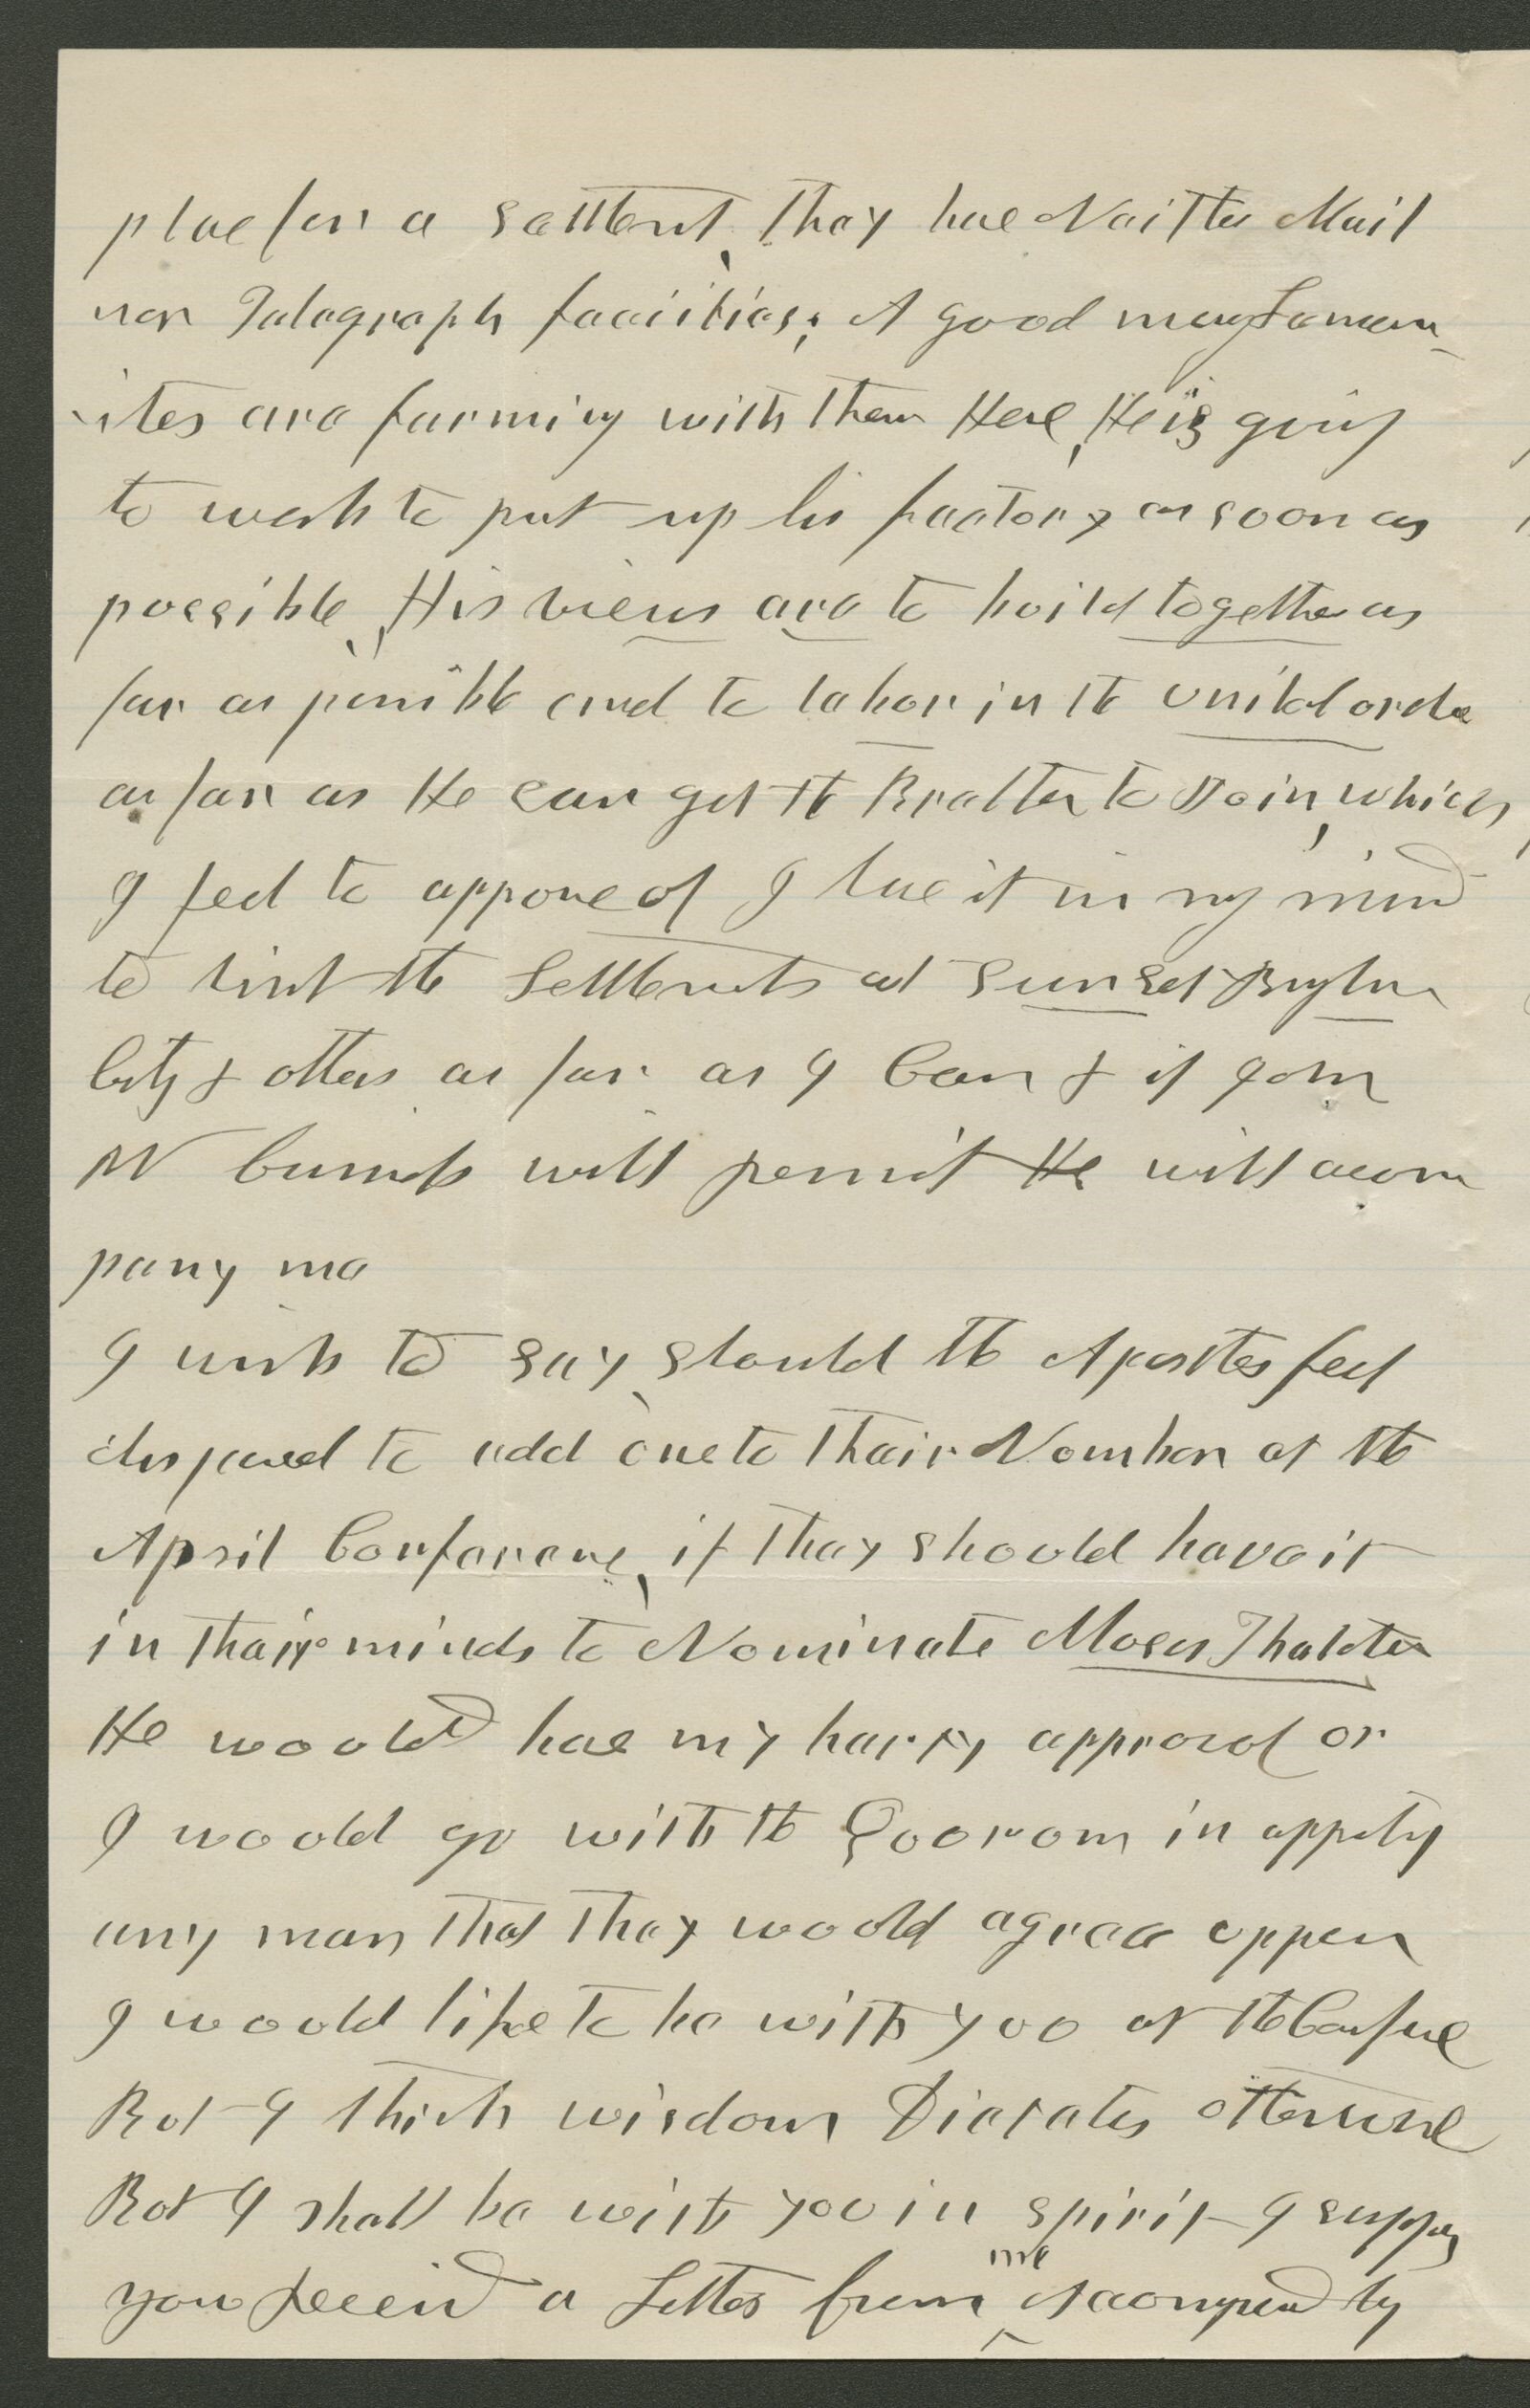 place for a Settlement, They have Neither Mail
nor Telegraph facilities; A good many Laman-
-ites are farming with them Here, He is going
to work to put up his factory as soon as
possible, His views are to hold together as
far as possible and to labor in the united order
as far as He can get the Brethren to Join, which
I feel to approve of I have it in my mind
to visit the Settlements at Sunset Brigham
City & others as far as I Can & if John
W business will permit He will accom
pany me
I wish to say, should the Apostles feel
disposed to add one to their Number at the
April Conference, if they should have it
in their minds to Nominate Moses Thatcher
He woold have my harty approval or
I woold go with the Qoorom in appointing
any man that they woold agree uppon
I woold like to be with yoo at the Conference
But I think wisdom Dictates otherwise
But I shall be with yoo in spirit I suppose
you received a Letter from me Accompanied by